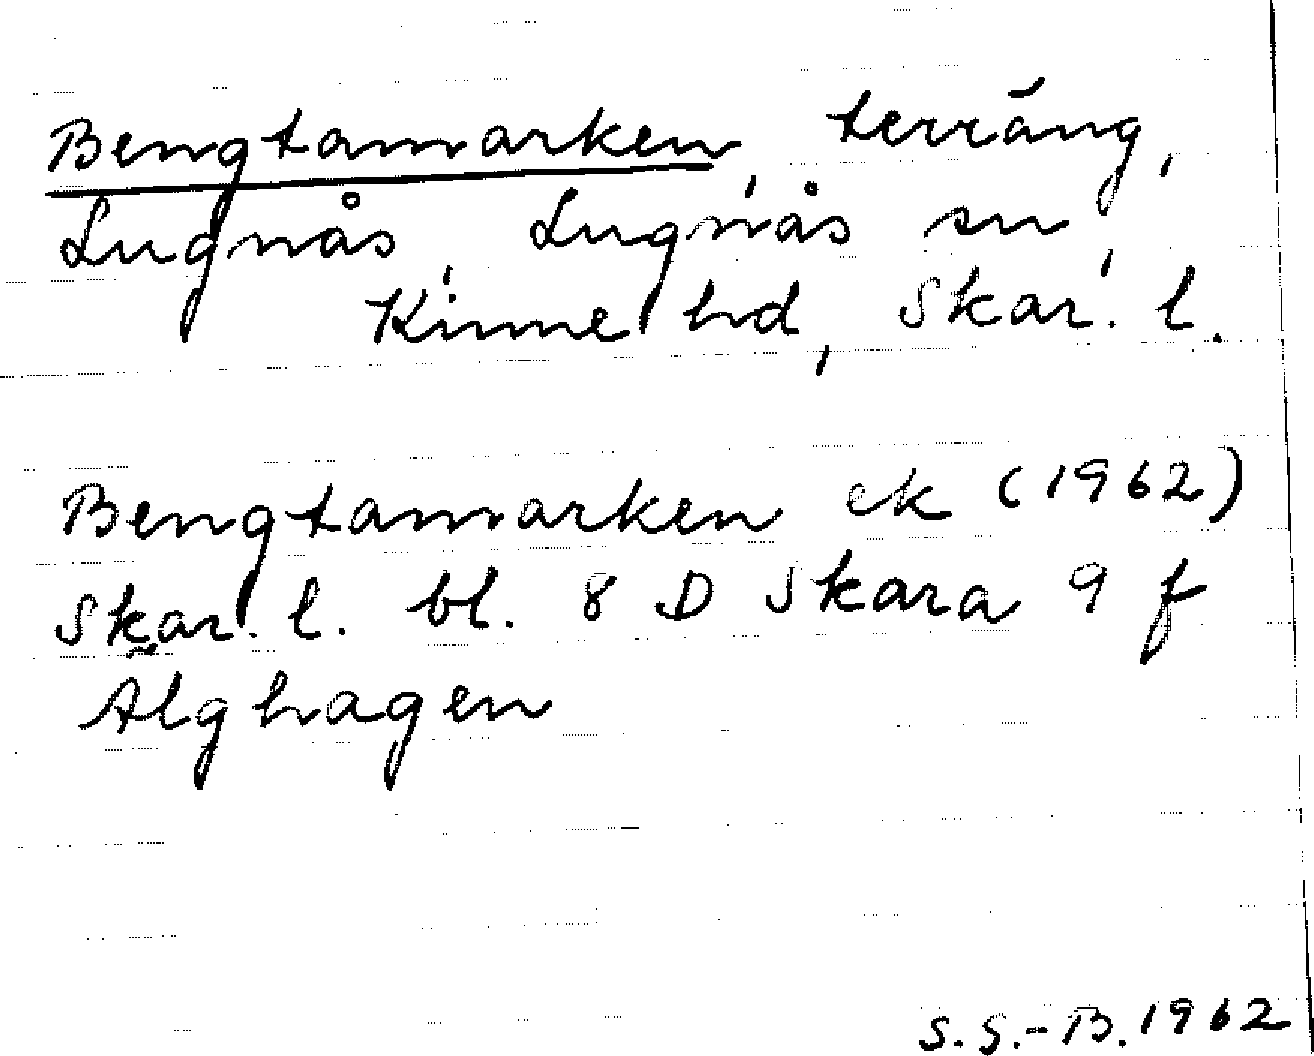 Bengtamarken, terräng,
Lugnås, Lugnås sn,
Kinne hd, Skar. l.
Bengtamarken ek (1962)
Skar. l. bl. 8 D Skara 9 f
Älghagen
S.G.-B. 1962